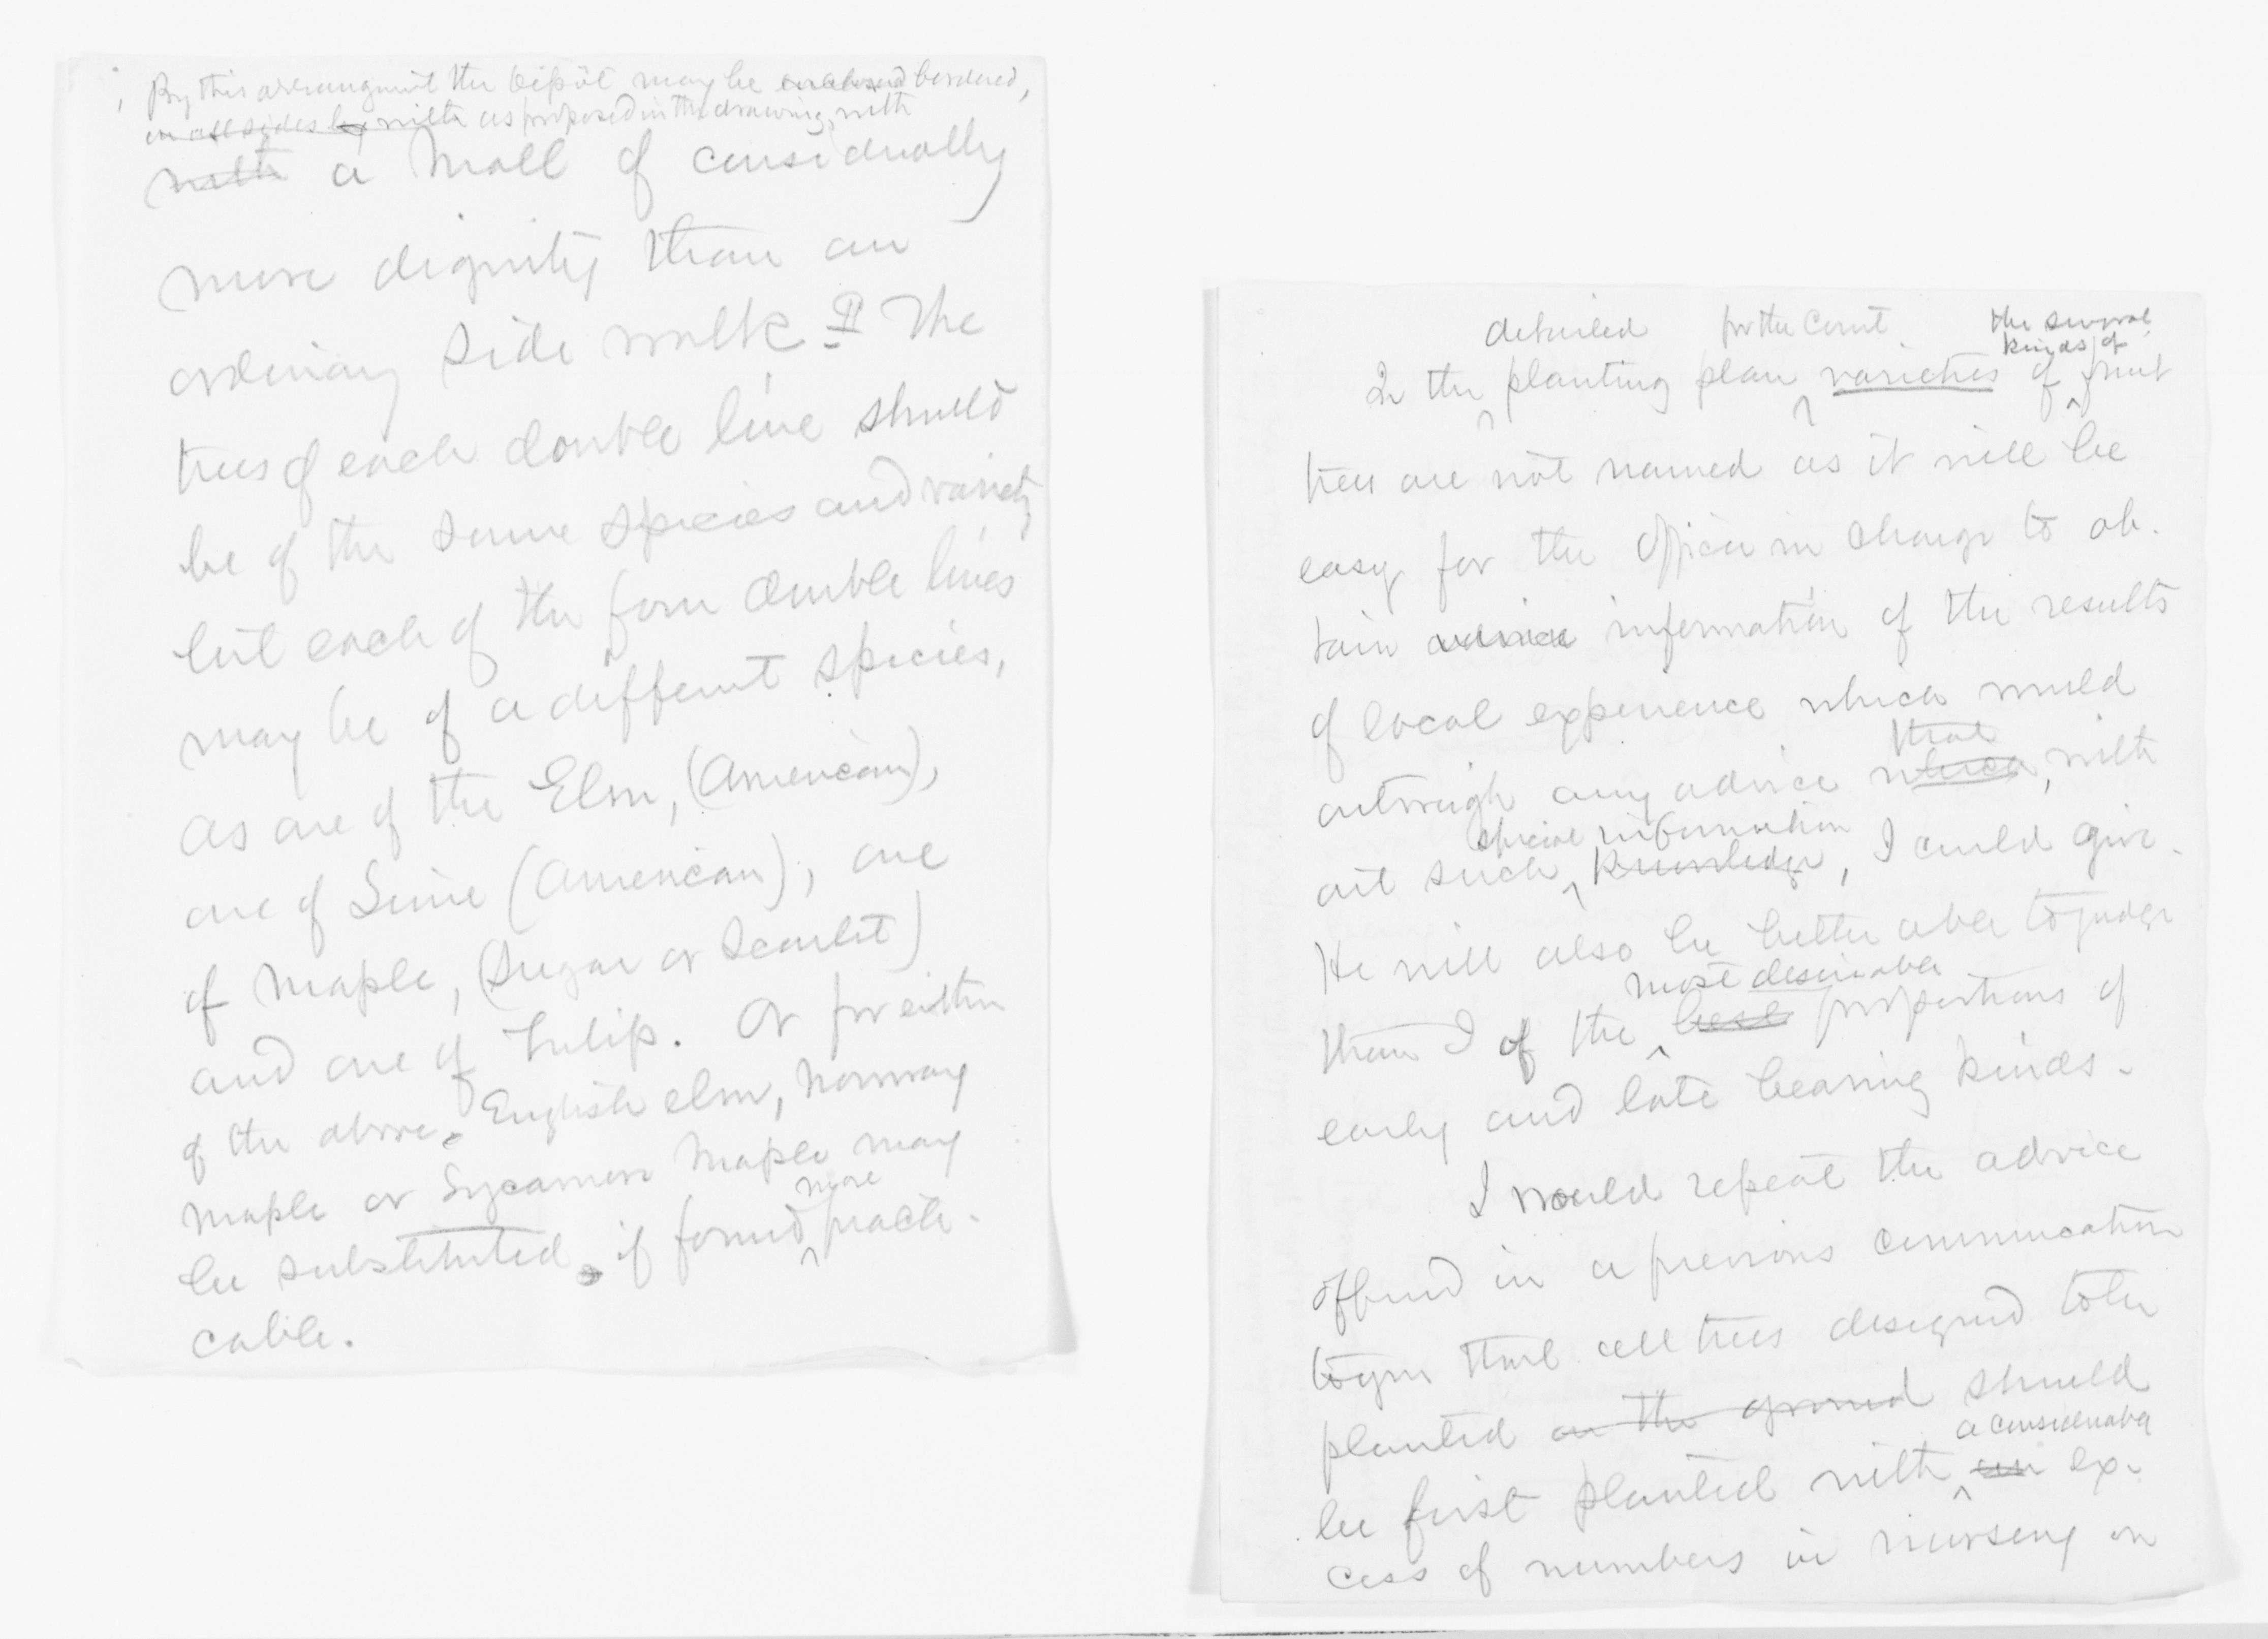 By this arrangement the depôt may be enclosed bordered,
on all sides by with as proposed in the drawing, with
with a Mall of considerably
more dignity than an
ordinary side walk. ¶ The
trees of each double line should
be of the same species and variety
but each of the four double lines
may be of a different species,
as one of the Elm, (American),
one of Lime (American); one
of Maple, (Sugar or Scarlet)
and one of Tulip. Or for either
of the above, English elm, Norway
maple or Sycamore Maple may
more
be substituted, if found practi-
cable.
detailed for the Court the several
kinds of
In the planting plan varieties of fruit
trees are not named as it will be
easy for the officer in charge to ob-
tain advice information of the results
of local experience which would
that
outweigh any advice which, with
special information
out such knowledge, I could give.
He will also be better able to judge
most desirable
than I of the best proportions of
early and late bearing kinds.
I would repeat the advice
offered in a previous communication
to you that all trees designed to be
planted on the ground should
a considerable
be first planted with an ex-
cess of numbers in nursery or